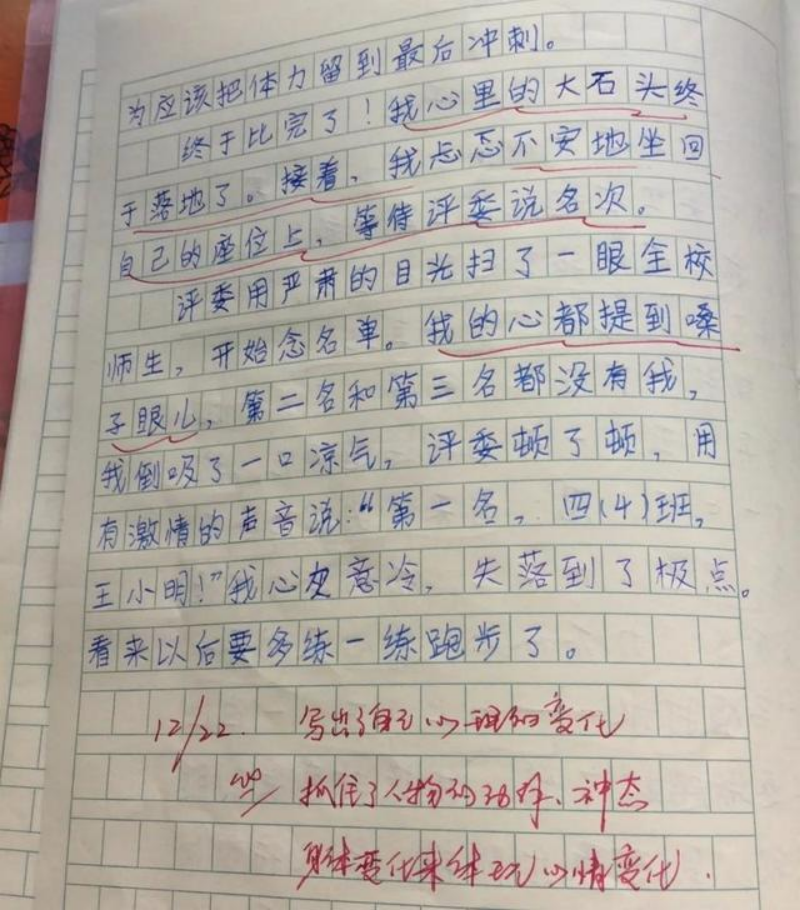 为应该把体力留到最后冲刺。
终于比完了！我心里的大石头终
于落地了。接着，我忐忑不安地坐回
自己的座位上，等待评委说名次。
评委用严肃的目光扫了一眼全校
师生，开始念名单。我的心都提到嗓
子眼儿，第二名和第三名都没有我，
我倒吸了一口凉气，评委顿了顿，用
有激情的声音说：“第一名，四(4)班，
王小明！”我心灰意冷，失落到了极点。
看来以后要多练一练跑步了。
12/22. 写出了自己心理的变化
抓住了人物的动作、神态
身体变化来体现心情变化.